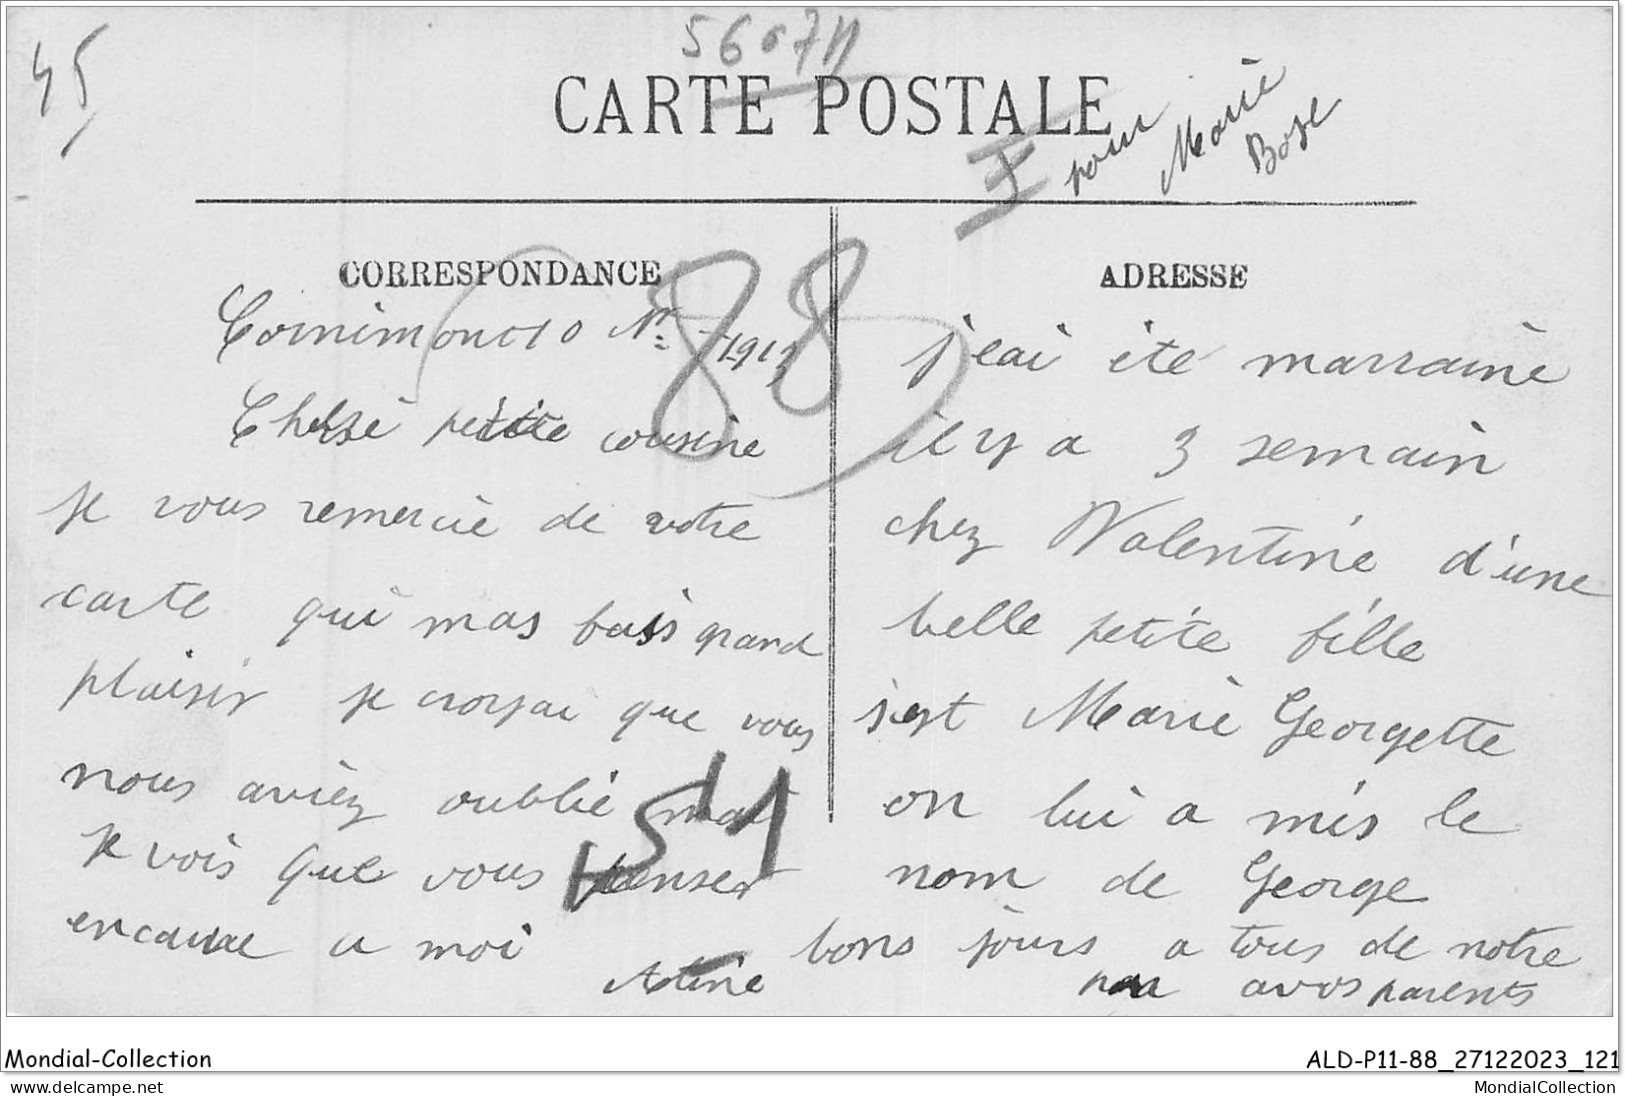 45
56071
CARTE POSTALE
pour
Marie
Bose
CORRESPONDANCE
Cornimont 10 Nre 1913
Chère petite cousine
je vous remercie de votre
carte qui mas fais grand
plaisir je croyai que vous
nous aviéz oublié mai
je vois que vous penser
encaure a moi
88
51
ADRESSE
j'eai ité marraine
il y a 3 semain
chez Valentine d'une
belle petite fille
s'est Marie Georgette
on lui a mis le
nom de George
bons jours a tous de notre
par avos parents
Mondial-Collection
ALD-P11-88_27122023_121
www.delcampe.net
MondialCollection